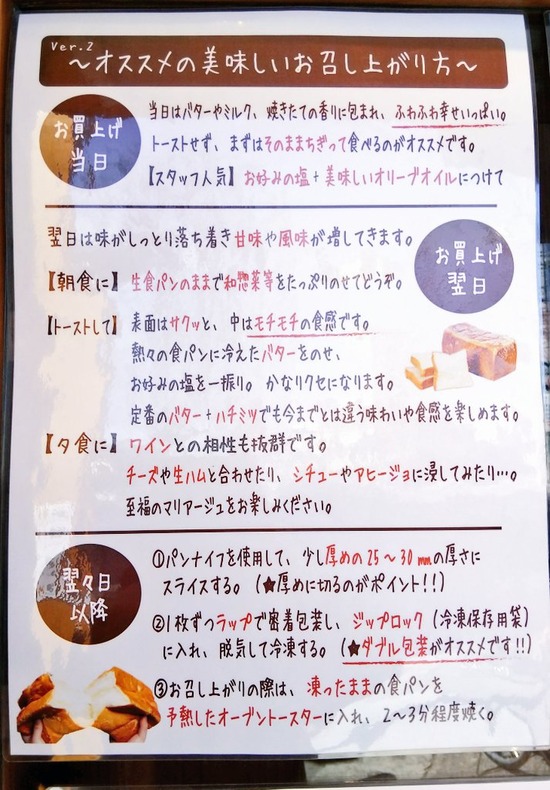 Ver.2
～オススメの美味しいお召し上がり方～
お買上げ
当日
当日はバターやミルク、焼きたての香りに包まれ、ふわふわ幸せいっぱい。
トーストせず、まずはそのままちぎって食べるのがオススメです。
【スタッフ人気】お好みの塩+美味しいオリーブオイルにつけて
お買上げ
翌日
翌日は味がしっとり落ち着き甘味や風味が増してきます。
【朝食に】生食パンのままで和惣菜等をたっぷりのせてどうぞ。
【トーストして】表面はサクッと、中はモチモチの食感です。
熱々の食パンに冷えたバターをのせ、
お好みの塩を一振り。かなりクセになります。
定番のバター+ハチミツでも今までとは違う味わいや食感を楽しめます。
【夕食に】ワインとの相性も抜群です。
チーズや生ハムと合わせたり、シチューやアヒージョに浸してみたり…。
至福のマリアージュをお楽しみください。
翌々日
以降
①パンナイフを使用して、少し厚めの25～30㎜の厚さに
スライスする。(★厚めに切るのがポイント!!)
②1枚ずつラップで密着包装し、ジップロック(冷凍保存用袋)
に入れ、脱気して冷凍する。(★ダブル包装がオススメです!!)
③お召し上がりの際は、凍ったままの食パンを
予熱したオーブントースターに入れ、2～3分程度焼く。